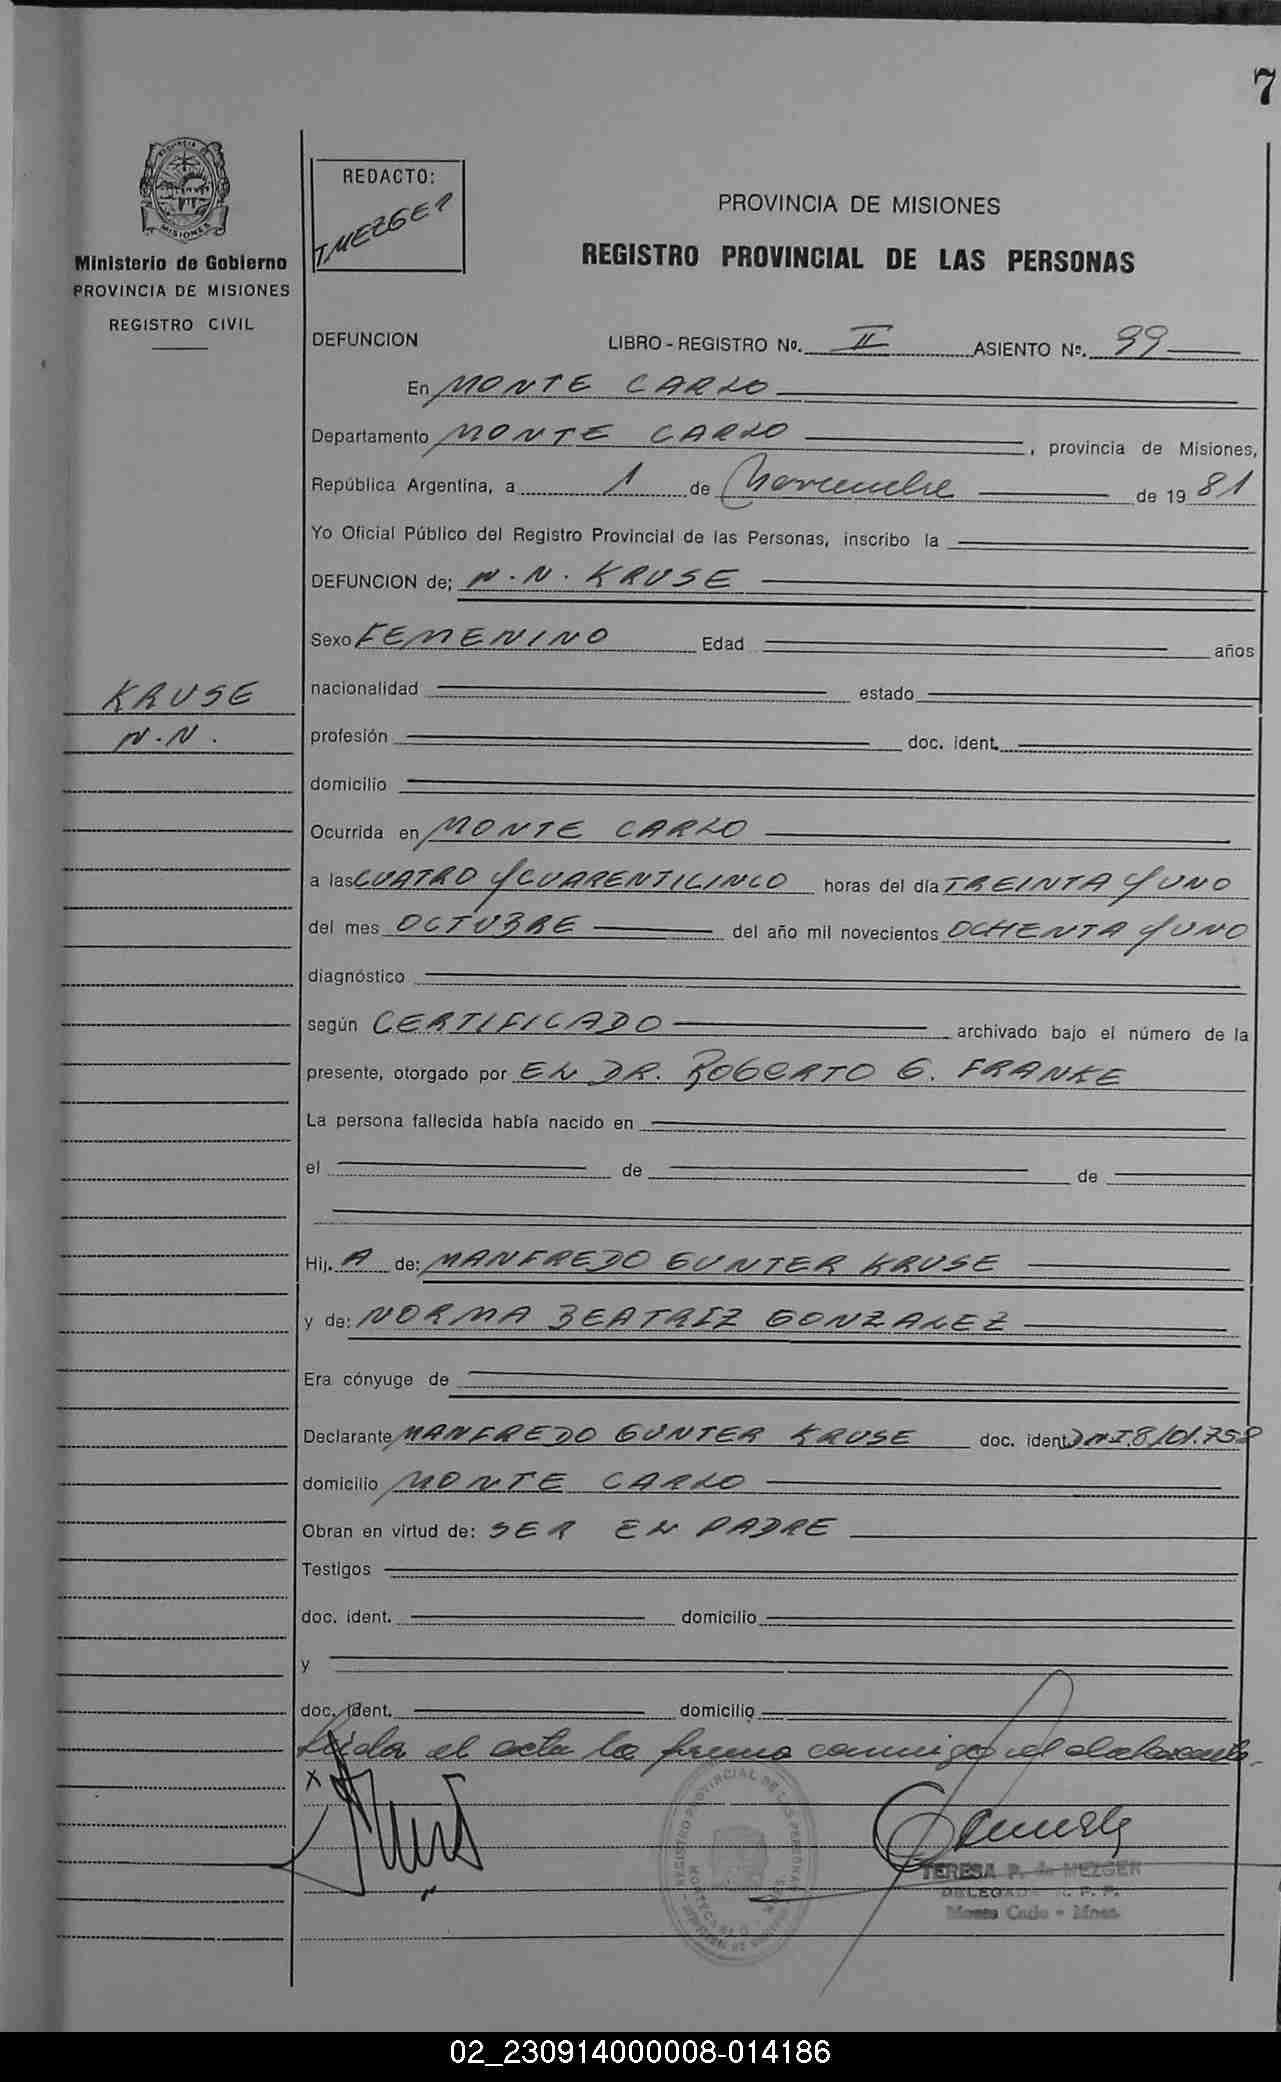 7
PROVINCIA
MISIONES
Ministerio de Gobierno
PROVINCIA DE MISIONES
REGISTRO CIVIL
REDACTO:
T.MEZGER
PROVINCIA DE MISIONES
REGISTRO PROVINCIAL DE LAS PERSONAS
DEFUNCION LIBRO - REGISTRO Nº. II ASIENTO Nº. 99
En MONTE CARLO
Departamento MONTE CARLO, provincia de Misiones,
República Argentina, a 1 de Noviembre de 19 81
Yo Oficial Público del Registro Provincial de las Personas, inscribo la
DEFUNCION de; N. N. KRUSE
Sexo FEMENINO Edad años
KRUSE
N. N.
nacionalidad estado
profesión doc. ident.
domicilio
Ocurrida en MONTE CARLO
a las CUATRO Y CUARENTICINCO horas del día TREINTA Y UNO
del mes OCTUBRE del año mil novecientos OCHENTA Y UNO
diagnóstico
según CERTIFICADO archivado bajo el número de la
presente, otorgado por EN DR. ROBERTO G. FRANKE
La persona fallecida había nacido en
el de de
Hij. A de: MANFREDO GUNTER KRUSE
y de: NORMA BEATRIZ GONZALEZ
Era cónyuge de
Declarante MANFREDO GUNTER KRUSE doc. ident. DNI.8101.758
domicilio MONTE CARLO
Obran en virtud de: SER EN PADRE
Testigos
doc. ident. domicilio
y
doc. ident. domicilio
Leída el acta la firma conmigo el declarante.
X
REGISTRO PROVINCIAL DE LAS PERSONAS
TERESA P. de MEZGER
DELEGADA R. P. P.
Monte Carlo - Mnes.
02_230914000008-014186